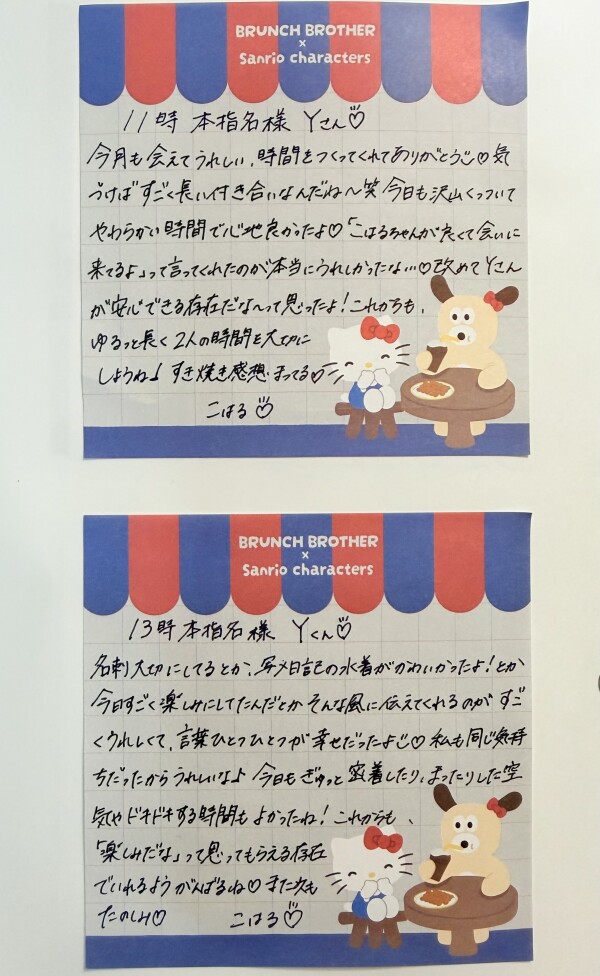 BRUNCH BROTHER
×
Sanrio characters
11時 本指名様 Yさん♡
今月も会えてうれしい、時間をつくってくれてありがとう♡気
づけばすごく長い付き合いなんだね〜笑 今日も沢山くっついて
やわらかい時間で心地良かったよ♡「こはるちゃんが良くて会いに
来てるよ」って言ってくれたのが本当にうれしかったな…♡改めてYさん
が安心できる存在だな〜って思ったよ!これからも、
ゆるっと長く2人の時間を大切に
しようね♪ すき焼き感想まってる♡
こはる♡
BRUNCH BROTHER
×
Sanrio characters
13時 本指名様 Yくん♡
名刺大切にしてるとか、写メ日記の水着がかわいかったよ!とか
今日すごく楽しみにしてたんだとかそんな風に伝えてくれるのがすご
くうれしくて、言葉ひとつひとつが幸せだったよ♡私も同じ気持
ちだったからうれしいな♪ 今日もぎゅっと密着したり、まったりした空
気やドキドキする時間もよかったね!これからも、
「楽しみだな」って思ってもらえる存在
でいれるようがんばるね♡また次も
たのしみ♡ こはる♡